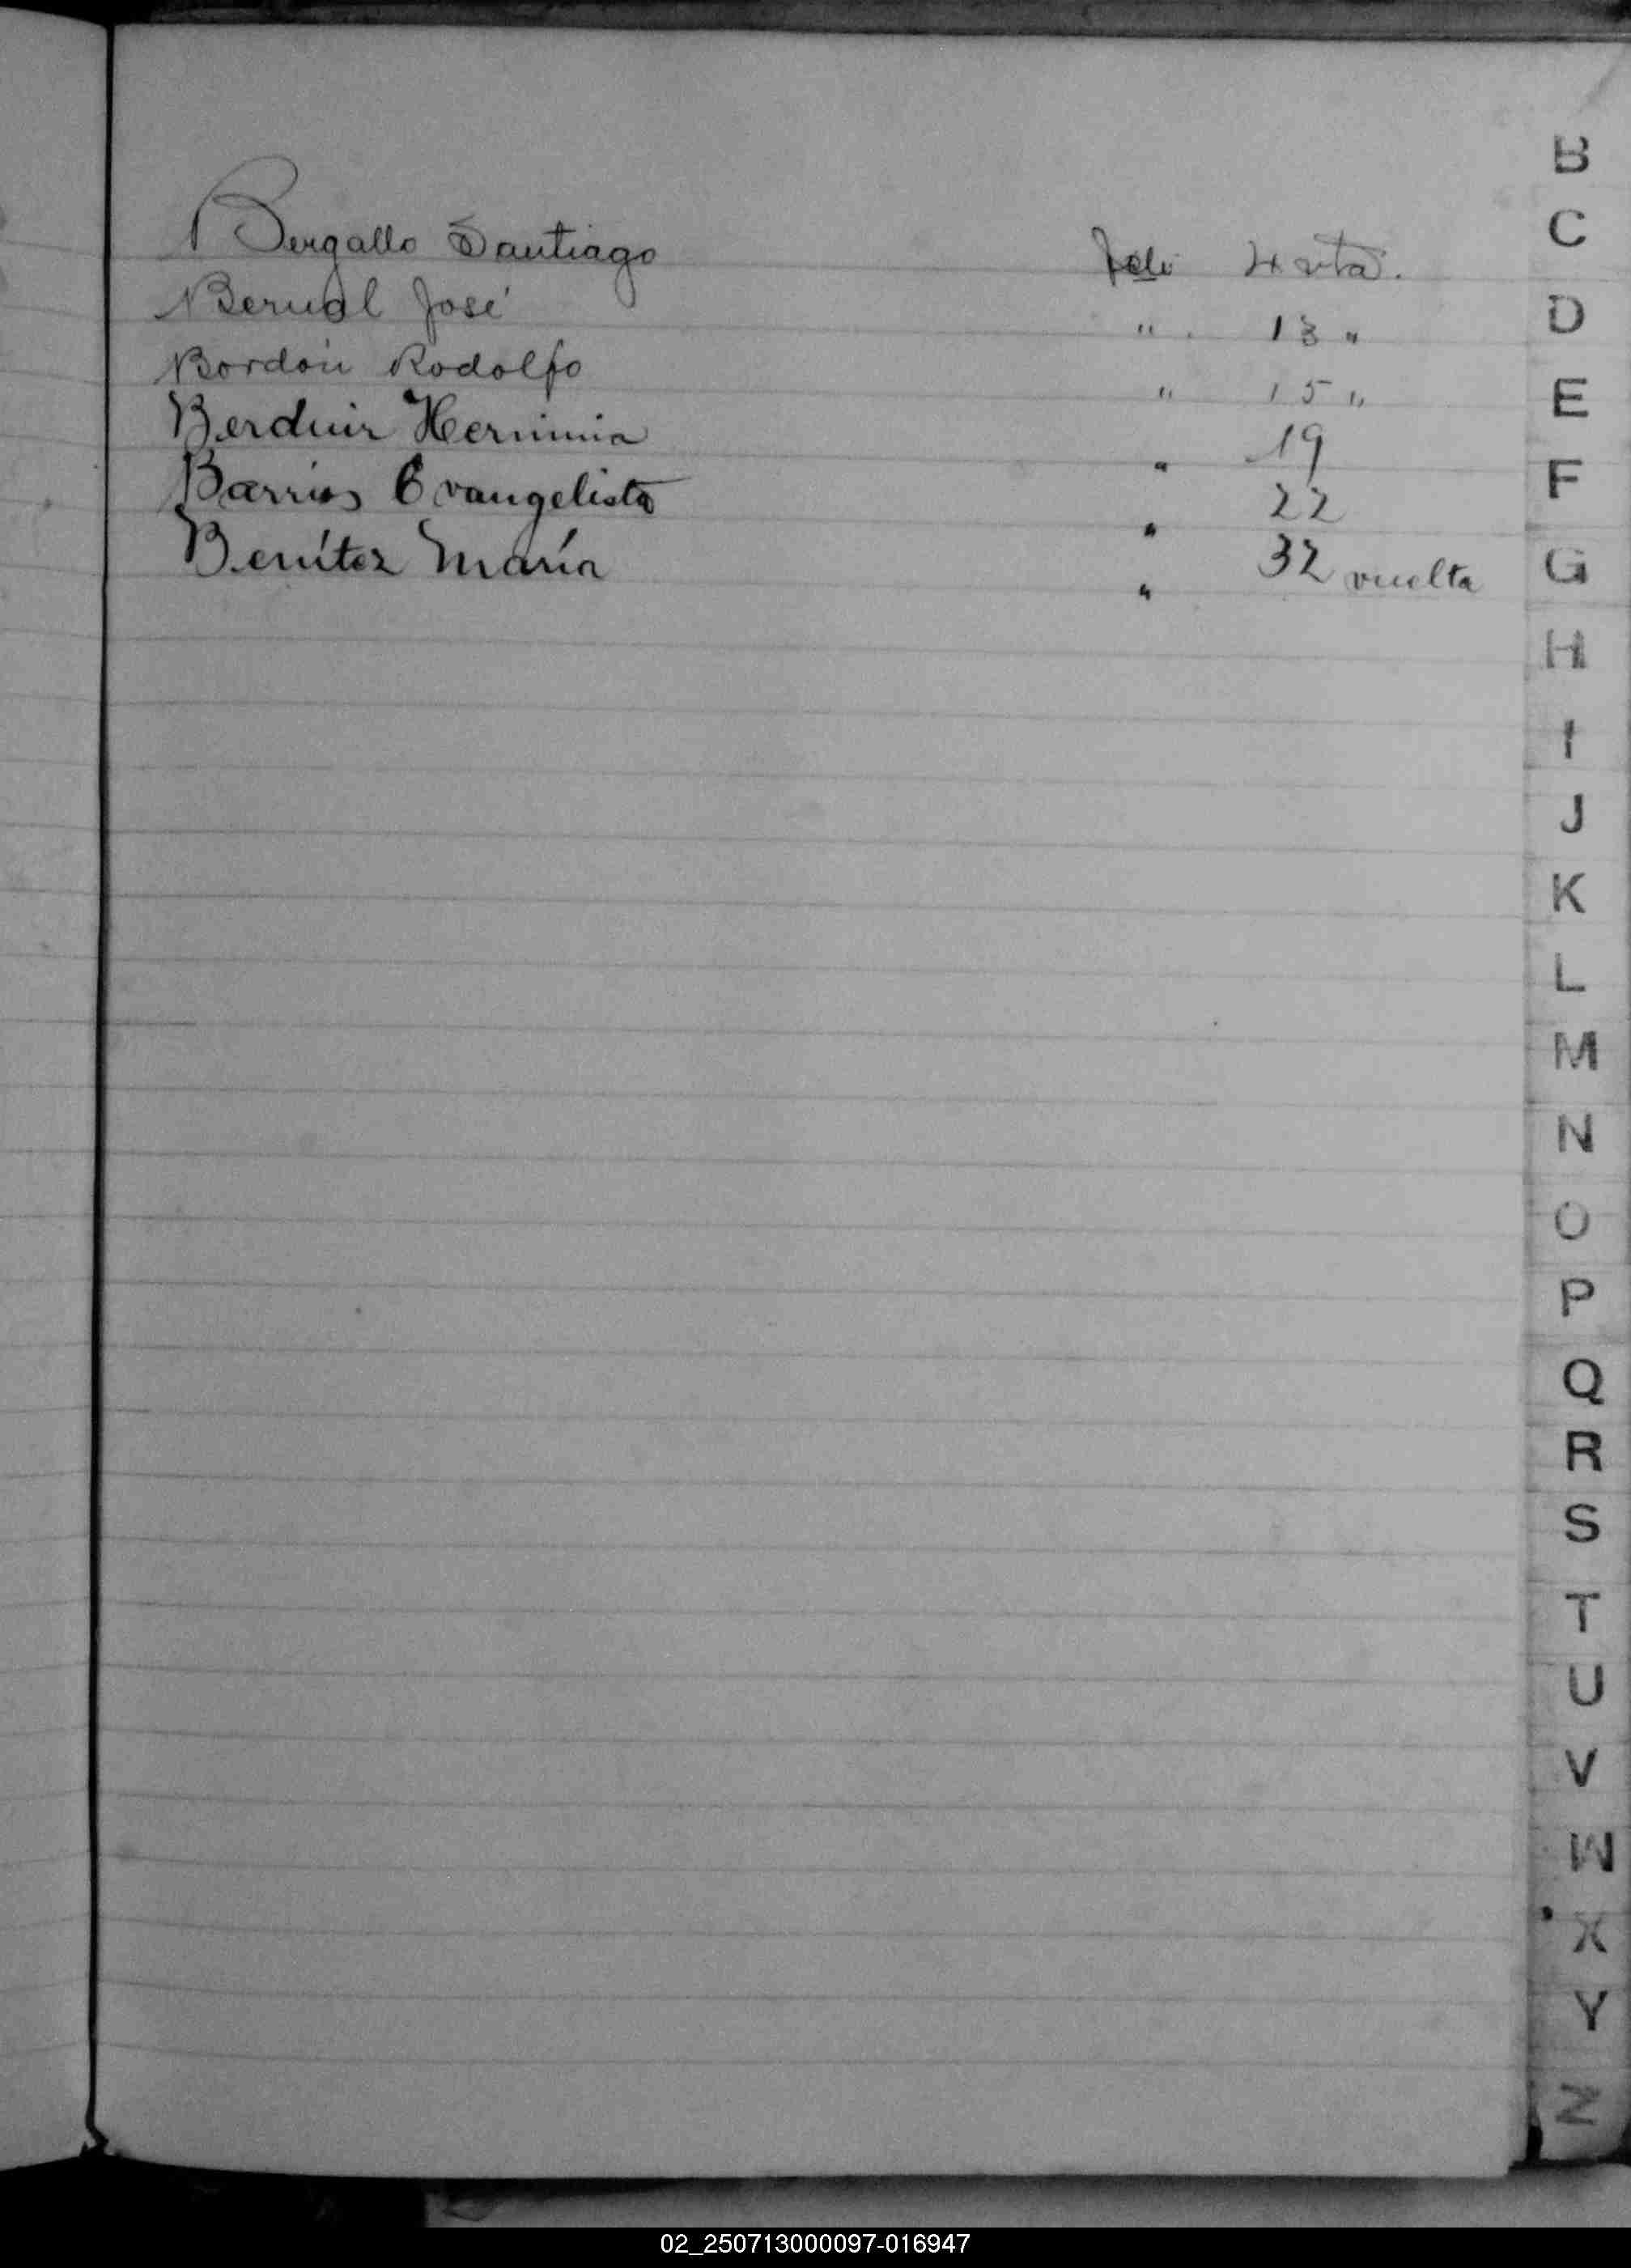 Bergallo Santiago Folio 4 vta.
Bernal José " 13 "
Bordón Rodolfo " 15 "
Herminia " 19
Barrios Evangelista " 22
Benítez María " 32 vuelta
B
C
D
E
F
G
H
I
J
K
L
M
N
O
P
Q
R
S
T
U
V
W
X
Y
Z
02_250713000097-016947